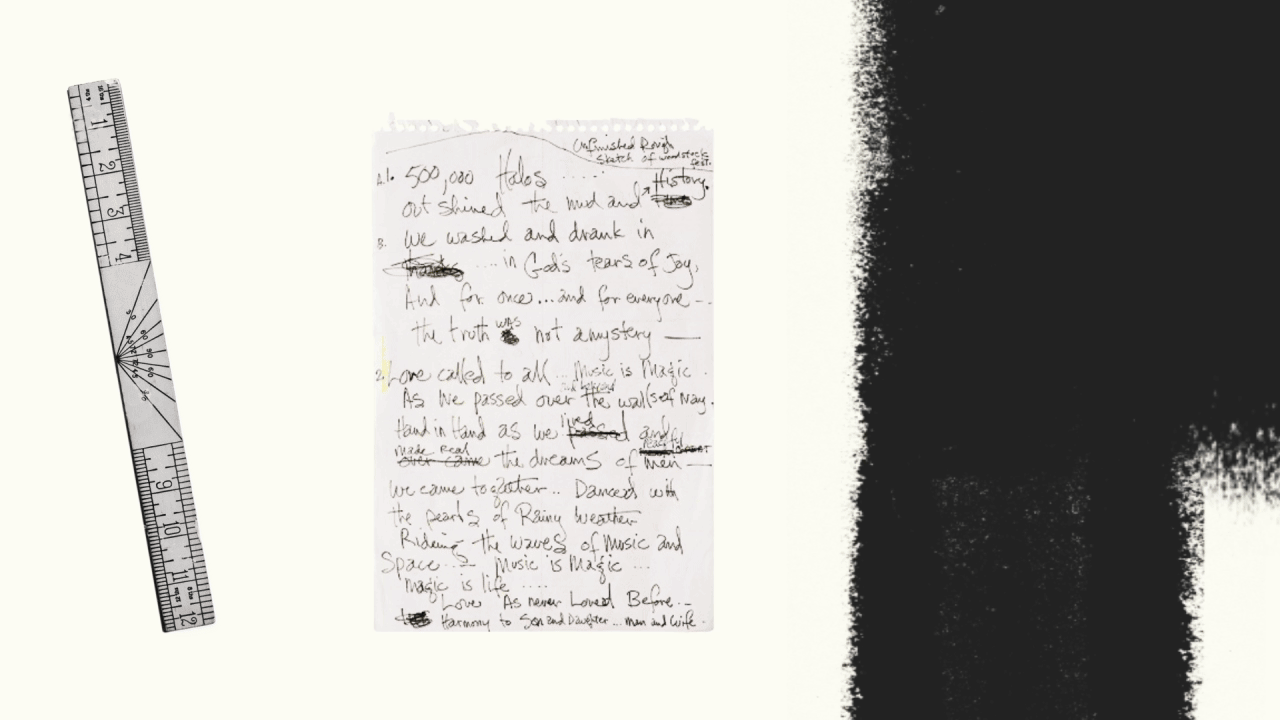 Unfinished Rough
Sketch of woodstock
fest.
A.1. 500,000 Halos ......
History.
out shined the mud and
B. We washed and drank in
.... in God's tears of Joy,
And for once... and for everyone --
was
the truth not a mystery —
2. Love called to all ... Music is Magic .
and beyond
As We passed over the walls of Nay.
lived
Hand in Hand as we passed and
made Real
over came the dreams of men —
We came together .. Danced with
the pearls of Rainy Weather
Riding the waves of Music and
Space .... Music is Magic ...
Magic is life ....
Love As never Loved Before ..
Harmony to Son and Daughter ... man and wife .
1
2
3
4
9
10
11
12